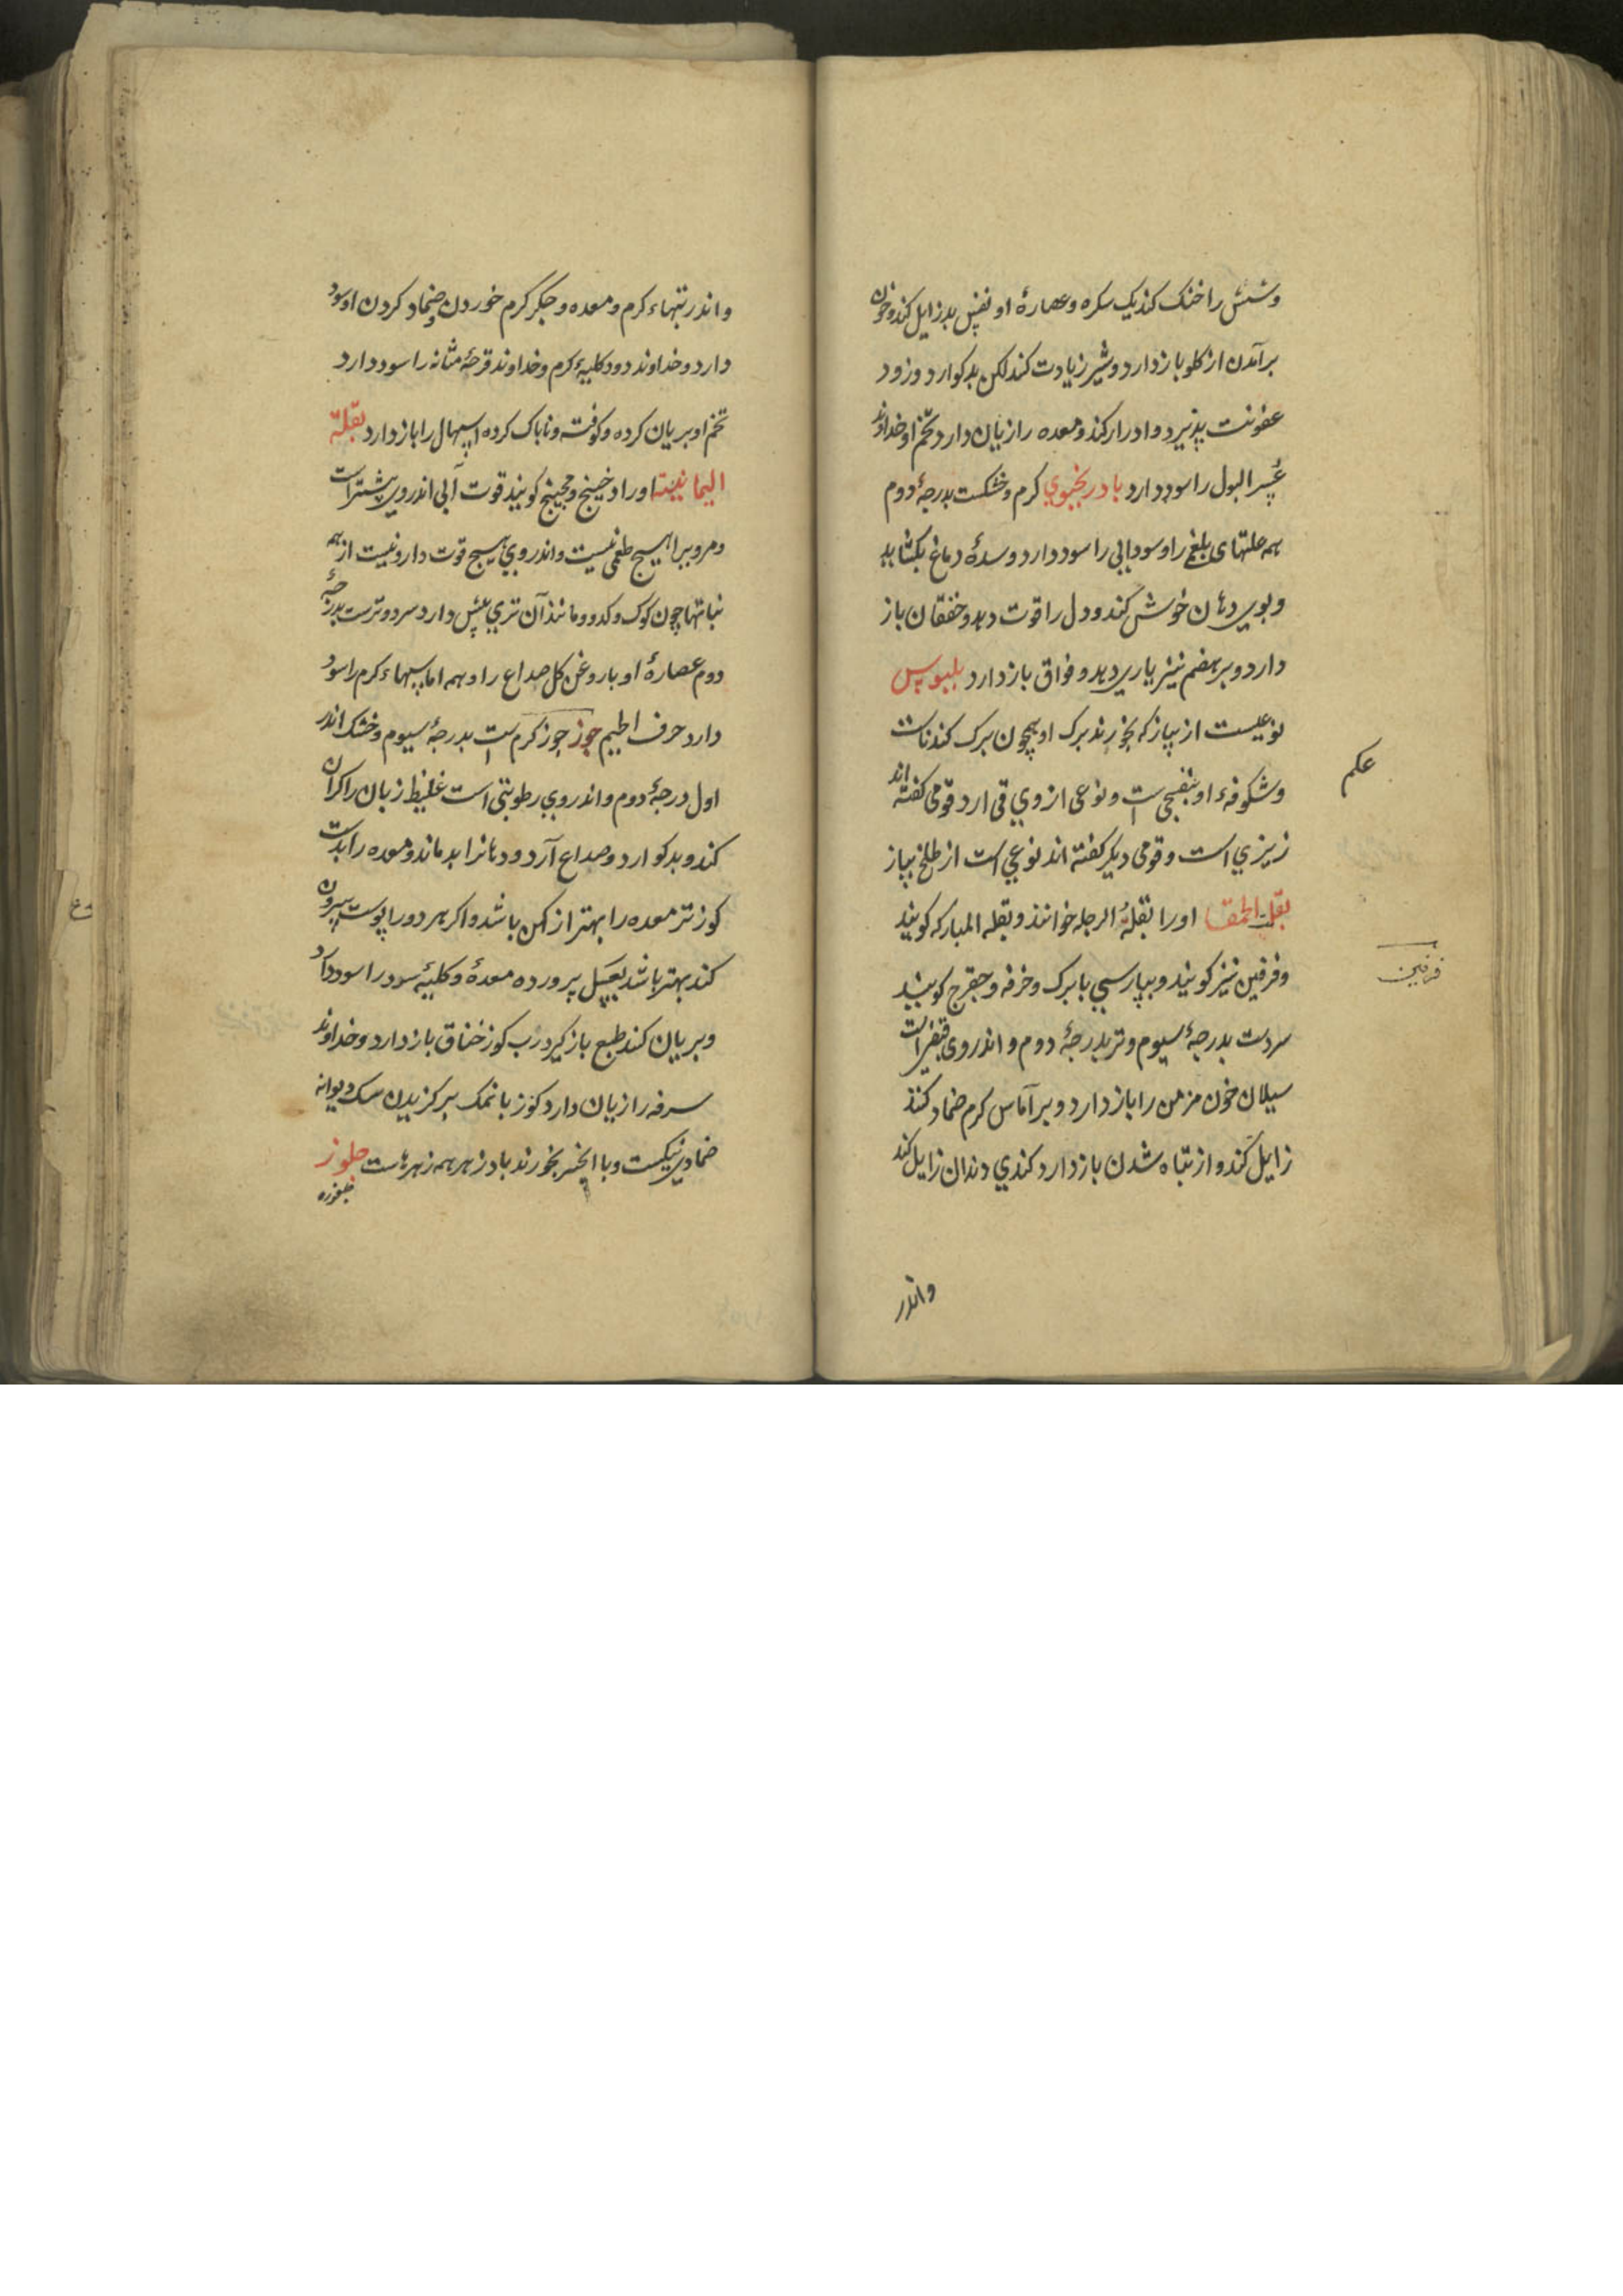 وشش را خنک کند یک سکره وعصارهٔ او نفس بد زایل کند وخون
برآمدن از کلو باز دارد وشیر زیادت کند لکن بد کوارد وزود
عفونت پذیرد وادرار کند ومعده را زیان دارد تخم او خداوند
عسر البول را سود دارد بادرنجبوی کرم وخشکست بدرجهٔ دوم
همه علتهای بلغمی را وسودایی را سود دارد وسدهٔ دماغ بکشاید
وبوی دهان خوش کند ودل را قوت دهد وخفقان باز
دارد وبر هضم نیز یاری دهد وفواق باز دارد بلبوس
نوعیست از پیاز که بخورند برک او همچون برک کندناست
وشکوفهٔ او بنفسجی است ونوعی از وی قی ارد قومی کفته اند
زیزی است وقومی دیکر کفته اند نوعی است از طلخ پیاز
بقلة الحمقا او را بقلة الرجله خوانند وبقله المبارکه کویند
وفرفین نیز کویند وبپارسی بابرک وخرفه و کویند
سردست بدرجهٔ سیوم وتر بدرجهٔ دوم واندر وی قبض است
سیلان خون مزمن را باز دارد وبر آماس کرم ضماد کنند
زایل کند واز تباه شدن باز دارد کندی دندان زایل کند
واندر
علم
فرفین
واندر تبهاء کرم ومعده وجکر کرم خوردن وضماد کردن او سود
دارد وخداوند درد کلیهٔ کرم وخداوند قرحهٔ مثانه را سود دارد
تخم او بریان کرده وکوفته وناپاک کرده اسهال را باز دارد بقلة
الیمانیة او را کویند قوت آبی اندر وی بیشتر است
ومرو را هیچ طعمی نیست واندر وی هیچ قوت دارو نیست از همه
نباتها چون کوک وکدو ومانند آن تری بیش دارد سرد وترست بدرجهٔ
دوم عصارهٔ او با روغن کل صداع را وهمه اماسهاء کرم را سود
دارد حرف الجیم جوز جوز کرم است بدرجهٔ سیوم وخشک اندر
اول درجهٔ دوم واندر وی رطوبتی است غلیظ زبان را کران
کند وبد کوارد وصداع آرد ودهانرا بدماند ومعده را بدست
کوز تر معده را بهتر از کهن باشد واکر هر دو را پوست بیرون
کنند بهتر باشد بعسل پرورده معدهٔ وکلیهٔ سرد را سود دارد
وبریان کند طبع باز کیرد رب کوز خناق باز دارد وخداوند
سرفه را زیان دارد کوز با نمک بر کزیدن سک دیوانه
ضمادی نیکست وبا انجیر بخورند پادزهر همه زهرهاست جلوز